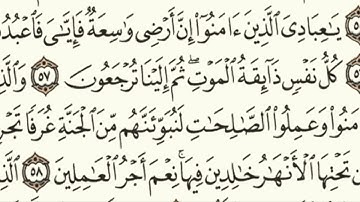 يَٰعِبَادِىَ ٱلَّذِينَ ءَامَنُوٓا۟ إِنَّ أَرْضِى وَٰسِعَةٌ فَإِيَّٰىَ فَٱعْبُدُ
كُلُّ نَفْسٍ ذَآئِقَةُ ٱلْمَوْتِ ۖ ثُمَّ إِلَيْنَا تُرْجَعُونَ ٥٧ وَٱلَّذِ
مَنُوا۟ وَعَمِلُوا۟ ٱلصَّٰلِحَٰتِ لَنُبَوِّئَنَّهُم مِّنَ ٱلْجَنَّةِ غُرَفًا تَجْرِ
تَحْتِهَا ٱلْأَنْهَٰرُ خَٰلِدِينَ فِيهَا ۚ نِعْمَ أَجْرُ ٱلْعَٰمِلِينَ ٥٨